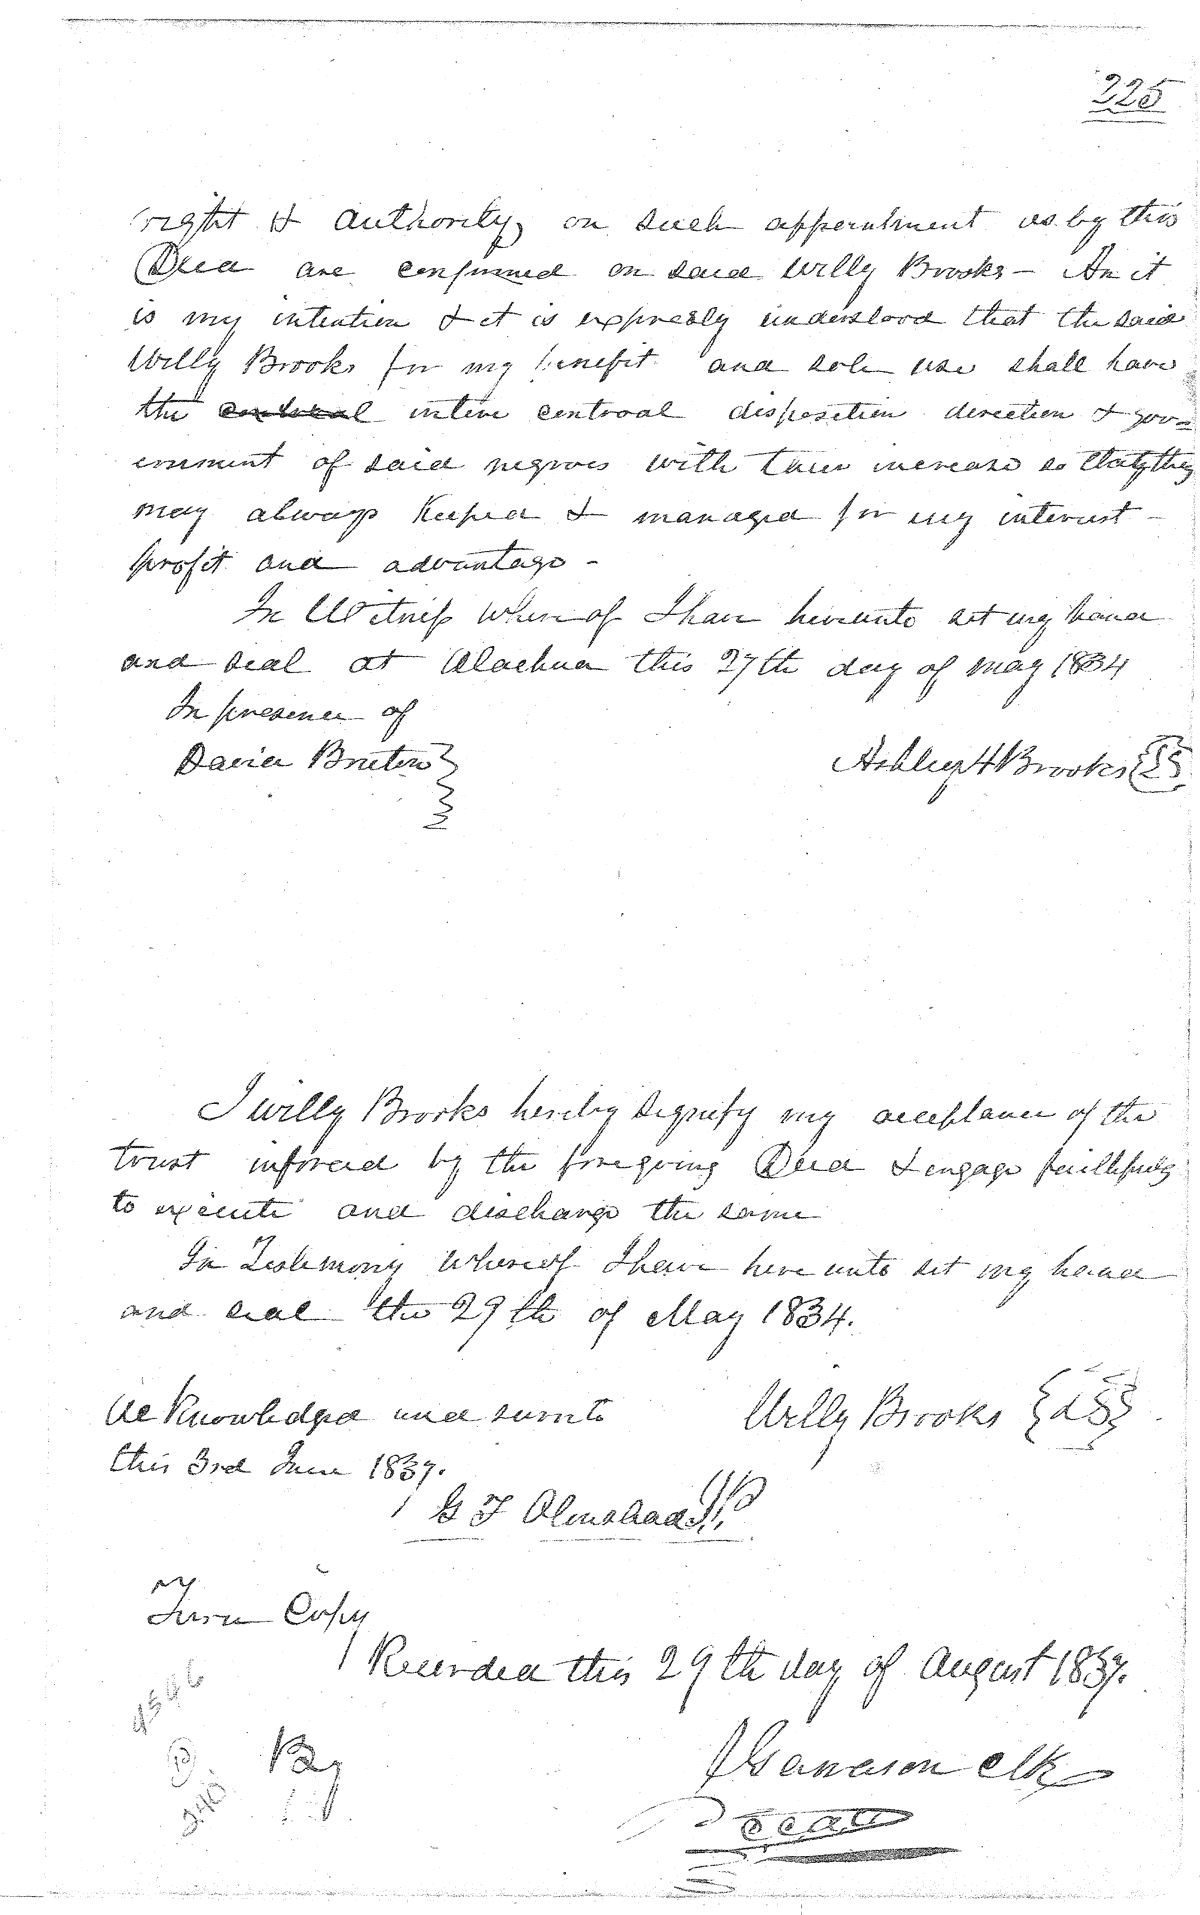 225
right & authority on such appointment as by this
Deed are confirmed on said Willy Brooks - An it
is my intention & it is expressly understood that the said
Willy Brooks for my benefit and sole use shall have
the intire controal disposition direction & gov=
ernment of said negroes with their increase so that they
may always keeped & managed for my interest -
profit and advantage -
In Witness whereof I have hereunto set my hand
and seal at Alachua this 27th day of may 1834
In presence of
David Bruton
Ashley H Brooks {LS}
I Willy Brooks hereby signify my acceptance of the
trust inforced by the foregoing Deed & engage faithfully
to execute and discharge the same
In Testimony whereof I have here unto set my hand
and seal the 29th of May 1834.
Willy Brooks {LS}
Acknowledged and sworn to
this 3rd June 1837.
G F Olmstead J.P.
True Copy
Recorded this 29th day of August 1837.
4546
clk
240